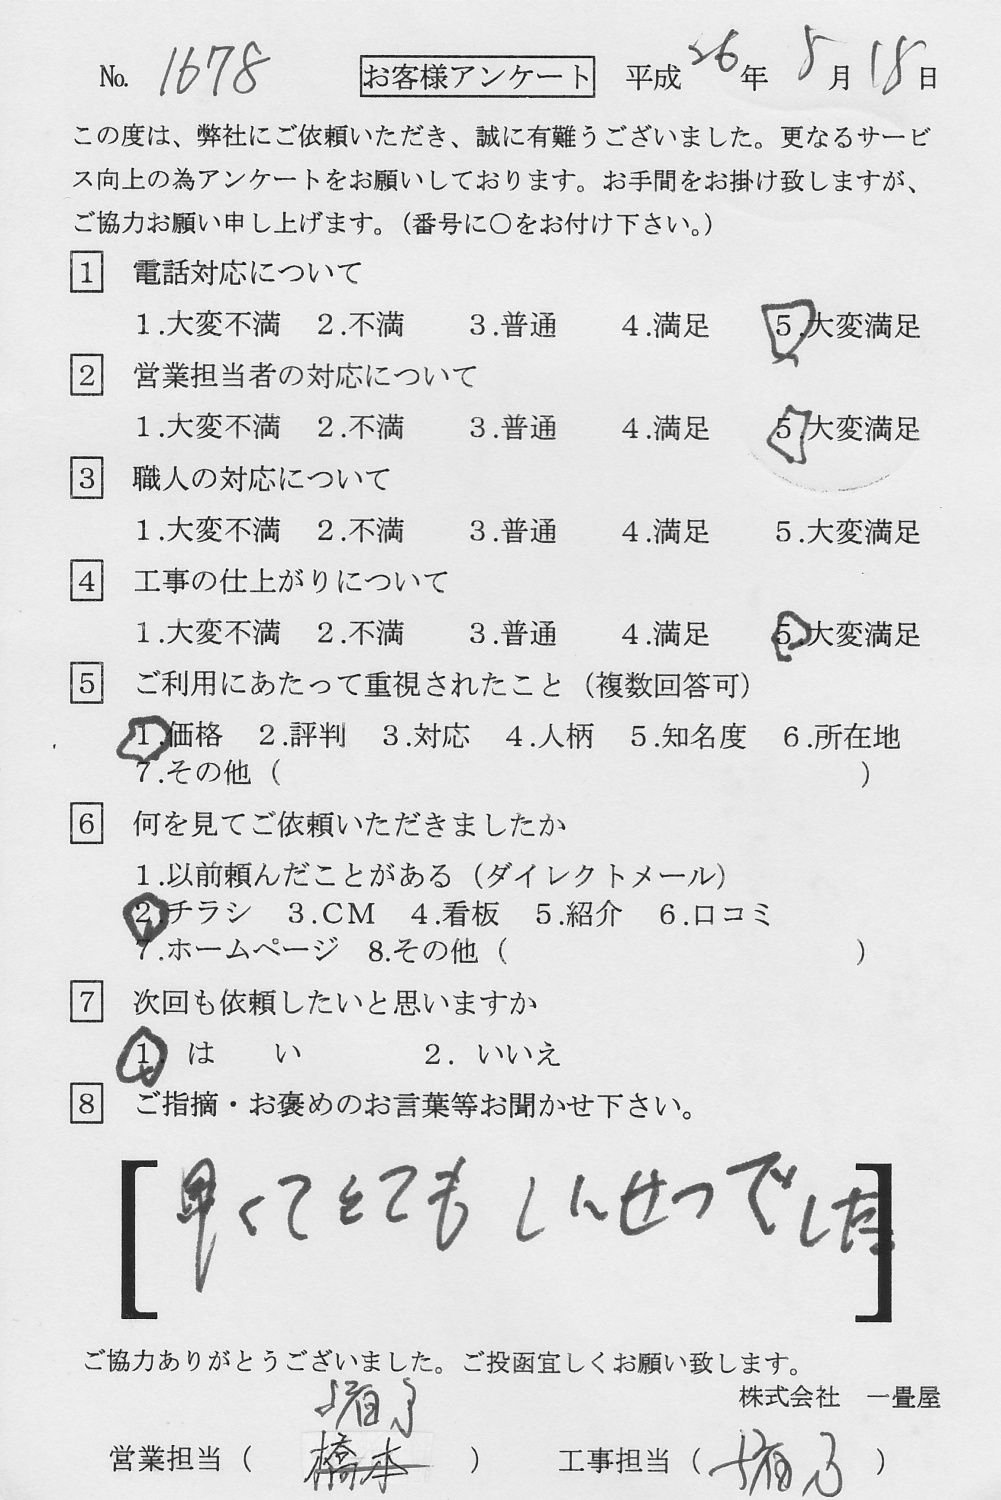 No. 1678 お客様アンケート 平成26年 8月 18日
この度は、弊社にご依頼いただき、誠に有難うございました。更なるサービ
ス向上の為アンケートをお願いしております。お手間をお掛け致しますが、
ご協力お願い申し上げます。(番号に〇をお付け下さい。)
1 電話対応について
1.大変不満 2.不満 3.普通 4.満足 5.大変満足
2 営業担当者の対応について
1.大変不満 2.不満 3.普通 4.満足 5.大変満足
3 職人の対応について
1.大変不満 2.不満 3.普通 4.満足 5.大変満足
4 工事の仕上がりについて
1.大変不満 2.不満 3.普通 4.満足 5.大変満足
5 ご利用にあたって重視されたこと(複数回答可)
1.価格 2.評判 3.対応 4.人柄 5.知名度 6.所在地
7.その他( )
6 何を見てご依頼いただきましたか
1.以前頼んだことがある(ダイレクトメール)
2.チラシ 3.CM 4.看板 5.紹介 6.口コミ
7.ホームページ 8.その他( )
7 次回も依頼したいと思いますか
1. はい 2. いいえ
8 ご指摘・お褒めのお言葉等お聞かせ下さい。
早くてとても しんせつでした
ご協力ありがとうございました。ご投函宜しくお願い致します。
株式会社 一畳屋
営業担当( 橋本 ) 工事担当( )